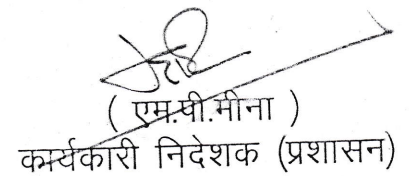 ( एम.पी.मीना )
कार्यकारी निदेशक (प्रशासन)